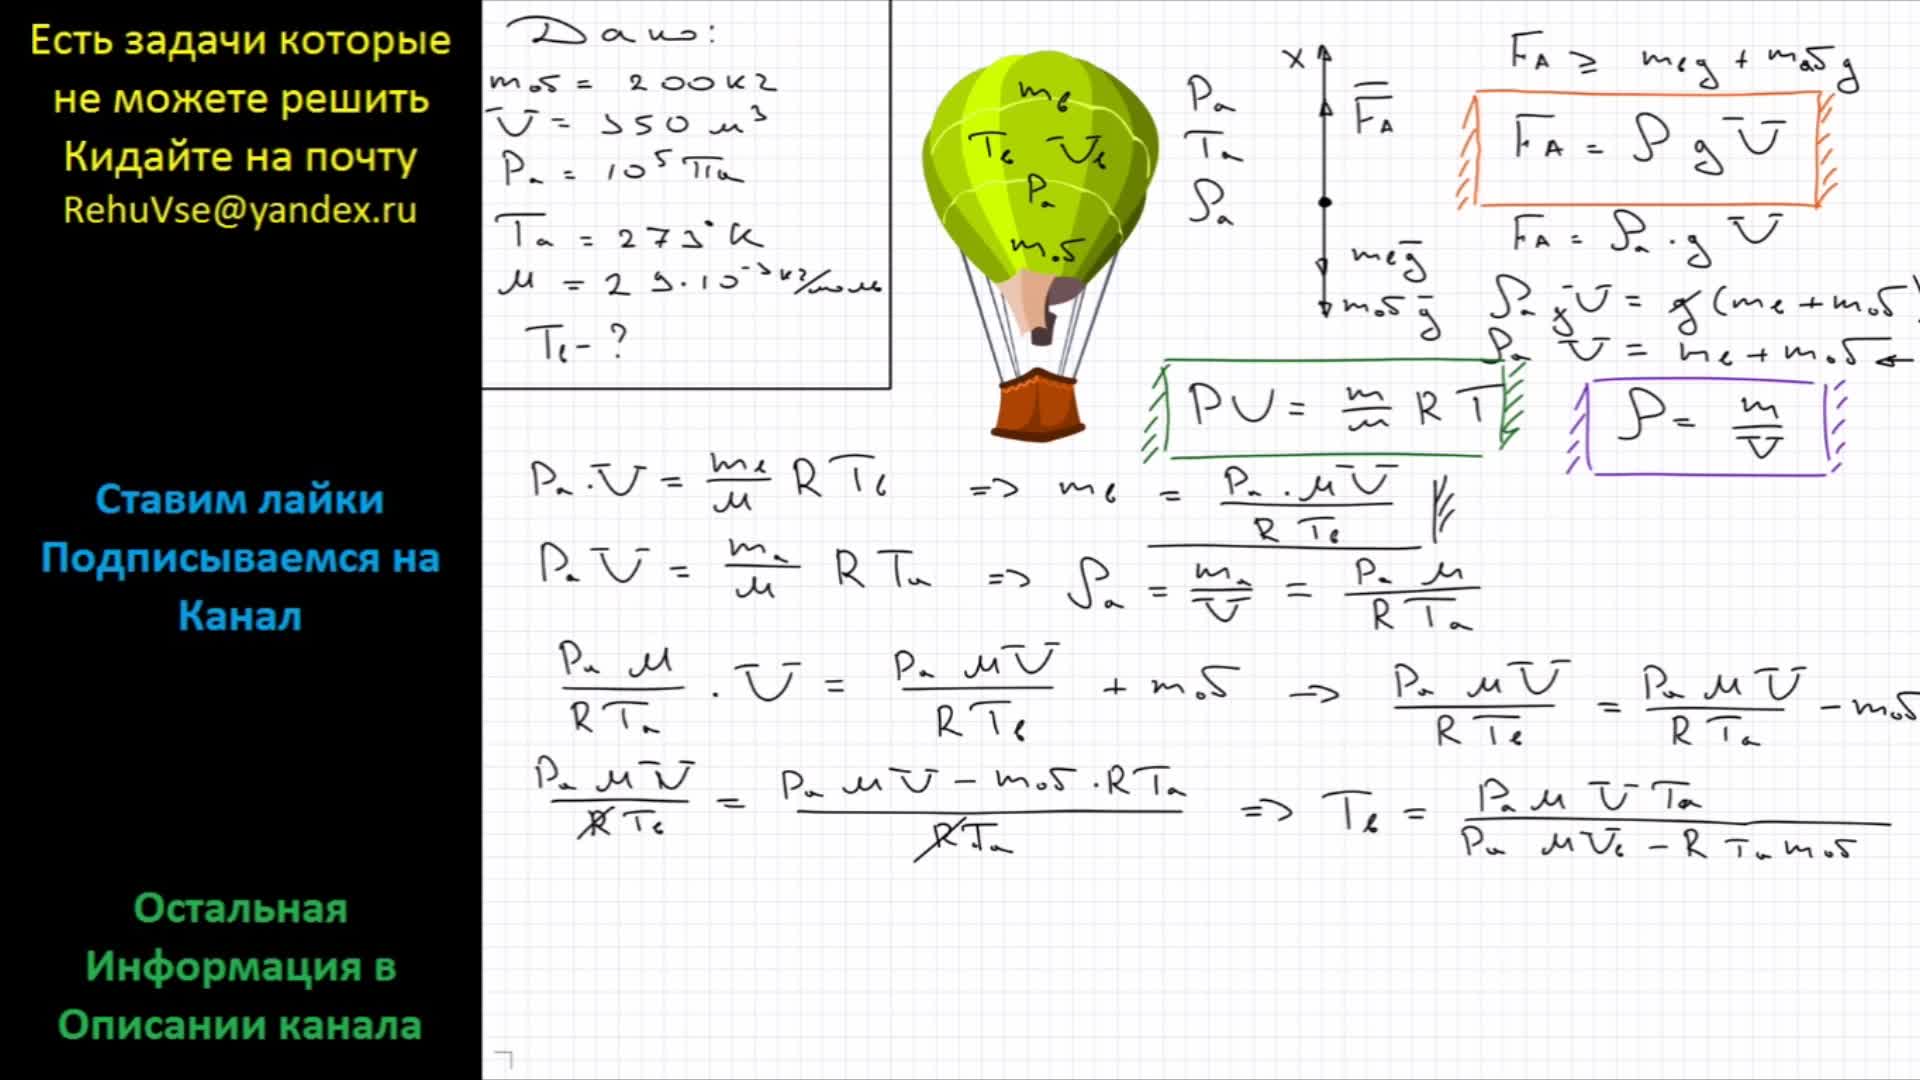 Есть задачи которые
не можете решить
Кидайте на почту
RehuVse@yandex.ru
Ставим лайки
Подписываемся на
Канал
Остальная
Информация в
Описании канала
Дано:
mоб = 200 кг
V = 350 м³
Pa = 10⁵ Па
Ta = 273° K
μ = 29·10⁻³ кг/моль
Tв - ?
mв
Tв Vв
Pa
mоб
Pa
Ta
ρa
X
F̅A
mвg̅
mобg̅
FA ≥ mвg + mобg
FA = ρgV
FA = ρa·gV
ρagV = g(mв + mоб)
ρa V = mв + mоб ←
PV = m/μ RT
ρ = m/V
Pa·V = mв/μ RTв => mв = Pa·μV / RTв
PaV = ma/μ RTa => ρa = ma/V = Paμ / RTa
Paμ / RTa · V = PaμV / RTв + mоб → PaμV / RTв = PaμV / RTa − mоб
PaμV / RTв = PaμV − mоб·RTa / RTa => Tв = PaμVTa / PaμVв − RTamоб